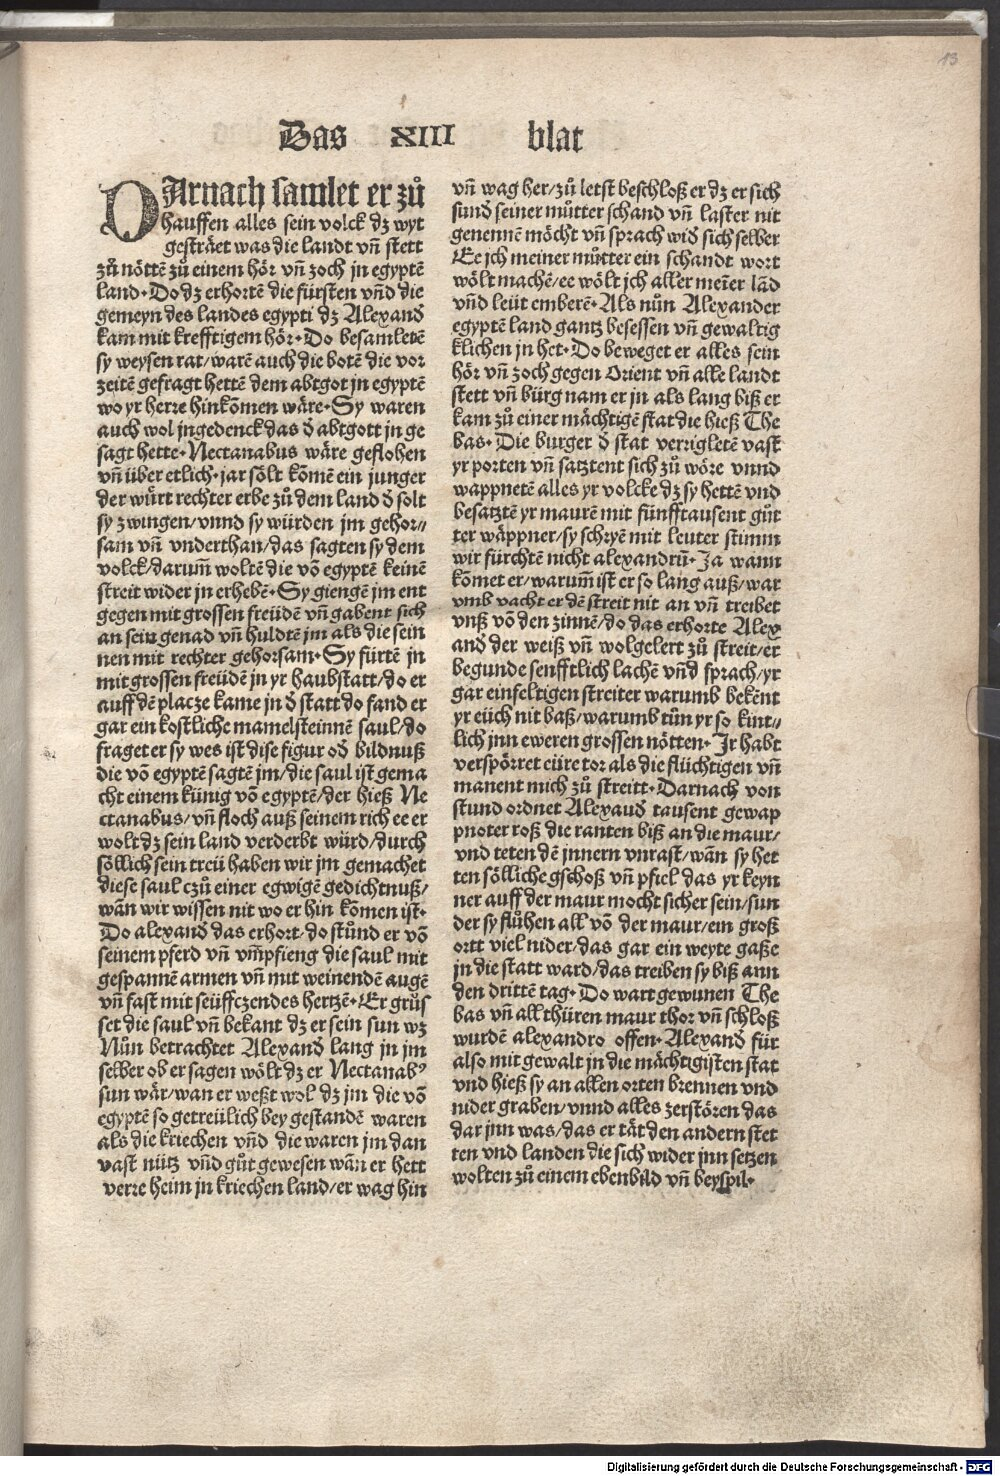 13
Das XIII blat
DArnach samlet er zů
hauffen alles sein volck dz wyt
gesträet was die landt vñ stett
zů nöttē zů einem hör vñ zoch jn egyptē
land. Do dz erhortē die fürsten vñd die
gemeyn des landes egypti dz Alexand
kam mit krefftigem hör. Do besamletē
sy weysen rat/warē auch die botē die vor
zeitē gefragt hettē dem abtgot jn egyptē
wo yr herre hinkōmen wäre. Sy waren
auch wol jngedenck das d abtgott jn ge
sagt hette. Nectanabus wäre geflohen
vñ über etlich. jar sölt kōmē ein junger
der würt rechter erbe zů dem land d solt
sy zwingen/vnnd sy würden jm gehor//
sam vñ vnderthan/das sagten sy dem
volck/darum̄ woltē die vō egyptē keinē
streit wider jn erhebē. Sy giengē jm ent
gegen mit grossen freüden vñ gabent sich
an sein genad vñ huldtē jm als die sein
nen mit rechter gehorsam. Sy fürtē jn
mit grossen freüden jn yr haubstatt/do er
auff dē placze kame jn d statt do fand er
gar ein kostliche mamelsteinnē saul/do
fraget er sy wes ist dise figur od bildnuß
die vō egyptē sagtē jm/die saul ist gema
cht einem künig vō egyptē/der hieß Ne
ctanabus/vñ floch auß seinem rich ee er
wolt dz sein land verderbt würd/durch
söllich sein treü haben wir jm gemachet
diese saul czů einer egwigē gedichtnuß/
wān wir wissen nit wo er hin kōmen ist.
Do alexand das erhort/do stůnd er vō
seinem pferd vñ vm̄pfieng die saul mit
gespannē armen vñ mit weinendē augē
vñ fast mit seüffczendes hertzē. Er grůs
set die saul vñ bekant dz er sein sun wz
Nůn betrachtet Alexand lang jn jm
selber ob er sagen wölt dz er Nectanab⁹
sun wär/wan er weßt wol dz jm die vō
egyptē so getreülich bey gestandē waren
als die kriechen vñd die waren jm dan
vast nütz vñd gůt gewesen wān er hett
verre heim jn kriechen land/er wag hin
vñ wag her/zů letst beschloß er dz er sich
sund seiner můtter schand vñ laster nit
genennē möcht vñ sprach wid sich selber
Ee jch meiner můtter ein schandt wort
wölt machē/ee wölt jch aller meīer lād
vñd leüt emberē. Als nůn Alexander
egyptē land gantz besessen vñ gewaltig
klichen jn het. Do beweget er alles sein
hör vñ zoch gegen Orient vñ alle landt
stett vñ bürg nam er jn als lang biß er
kam zů einer mächtigē stat die hieß The
bas. Die burger d stat verrigletē vast
yr porten vñ satztent sich zů wöre vnnd
wappnetē alles yr volcke dz sy hettē vnd
besatztē yr maurē mit fünfftausent gůt
ter wäppner/sy schryē mit leuter stimm
wir fürchtē nicht alexandrū. Ja wann
kōmet er/warum̄ ist er so lang auß/war
vmb vacht er dē streit nit an vñ treibet
vnß vō den zinnē/do das erhorte Alex
and der weiß vñ wolgelert zů streit/er
begunde senfftlich lachē vñd sprach/yr
gar einfeltigen streiter warumb bekēnt
yr eüch nit baß/warumb tůn yr so kint//
lich jnn eweren grossen nötten. Jr habt
verspörret eüre tor als die flüchtigen vñ
manent mich zů streitt. Darnach von
stund ordnet Alexand tausent gewap
pnoter roß die ranten biß an die maur/
vnd teten dē jnnern vnrast/wān sy het
ten sölliche gschoß vñ pfiel das yr keyn
ner auff der maur mocht sicher sein/sun
der sy fluhen all vō der maur/ein groß
ortt viel nider/das gar ein weyte gaße
jn die statt ward/das treiben sy biß ann
den drittē tag. Do wart gewunen The
bas vñ all thüren maur thor vñ schloß
wurdē alexandro offen. Alexand für
also mit gewalt jn die mächtigisten stat
vnd hieß sy an allen orten brennen vnd
nider graben/vnnd alles zerstören das
dar jnn was/das er tät den andern stet
ten vnd landen die sich wider jnn setzen
wolten zů einem ebenbild vñ beyspil.
Digitalisierung gefördert durch die Deutsche Forschungsgemeinschaft - DFG